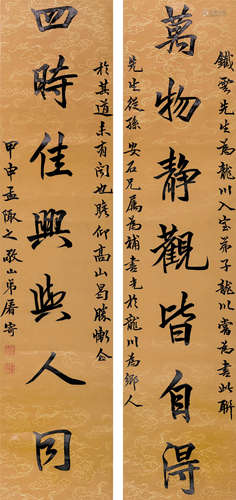 萬物靜觀皆自得
鐵雲先生為龍川入室弟子龍川嘗為書此聯
先生從孫安石兄屬為補書先於龍川為鄉人
四時佳興與人同
於其道未有聞也瞻仰高山曷勝慚仝
甲申孟陬之 弟屠寄